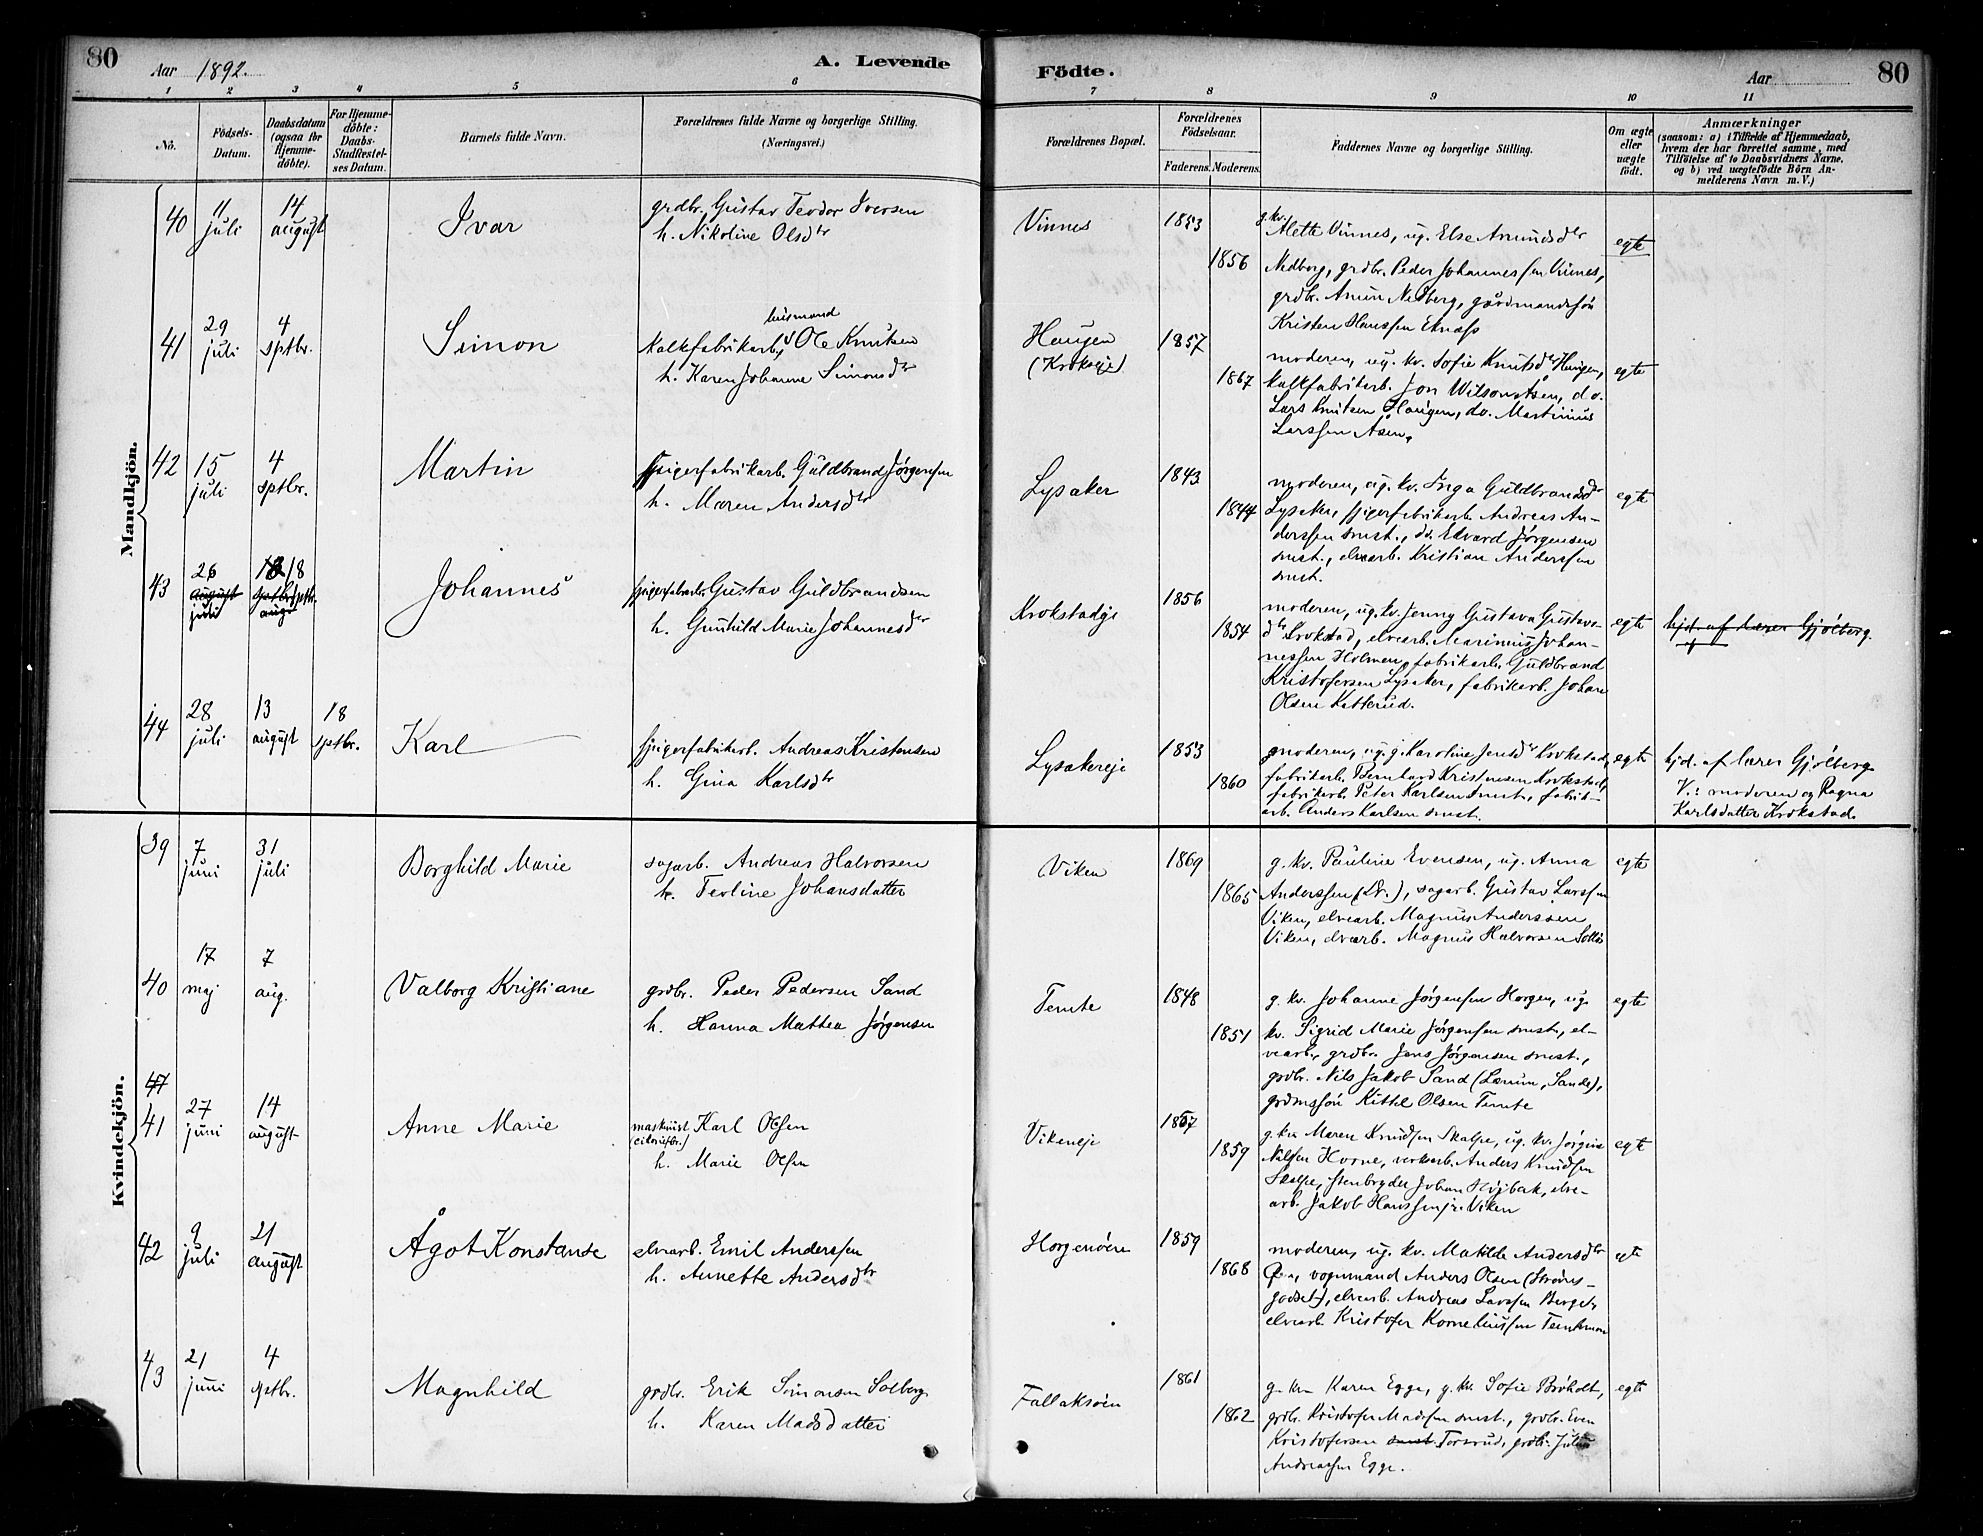 80
Aar 1892.
A. Levende
Födte.
Aar
80
1 2 3 4 5 6 7 8 9 10 11
No.
Födsels-
Datum.
Daabsdatum
(ogsaa for
Hjemme-
döbte).
For Hjemme-
döbte:
Daabs-
Stadfæstel-
ses Datum.
Barnets fulde Navn.
Forældrenes fulde Navne og borgerlige Stilling.
(Næringsvei.)
Forældrenes Bopæl.
Forældrenes
Födselsaar.
Faderens. Moderens.
Faddernes Navne og borgerlige Stilling.
Om ægte
eller
uægte
födt.
Anmærkninger
(saasom: a) i Tilfælde af Hjemmedaab,
hvem der har forrettet samme, med
Tilföielse af to Daabsvidners Navne,
og b) ved uægtefödte Börn An-
melderens Navn m. V.)
Mandkjön.
40
11
juli
14
august
Ivar
grdbr. Gustav Teodor Iversen
h. Nikoline Olsdtr
Vinnes
1853
1856
g. kv.
Alette Vinnes, ug. Else Amundsdtr
Nedberg, grdbr. Peder Johannessen Vinnes,
grdbr. Anun Nedberg, gårdmandssön
Kristen Hanssen Eknæss
egte
41
29
juli
4
sptbr.
Simon
husmand
kalkfabrikarb. Ole Knutsen
h. Karen Johanne Simonsdtr
Haugen
(Krokseje)
1857
1867
moderen, ug. kv. Sofie Knutsdtr Haugen,
kalkfabrikarb. Jon Wilson Åsen, do.
Lars Knutsen Haugen, do. Martinius
Larssen Åsen.
egte
42
15
juli
4
sptbr.
Martin
spigerfabrikarb. Guldbrand Jørgensen
h. Maren Andersdtr
Lysaker
1843
1844
moderen, ug. kv. Inga Guldbrandsdtr
Lysaker, spigerfabrikarb. Andreas An-
derssen smst., do. Edvard Jørgensen
smst., elvearb. Kristian Anderssen
smst.
egte
43
26
august
juli
18
sptbr.
Johannes
spigerfabrarb. Gustav Guldbrandsen
h. Gunhild Marie Johannesdtr
Krokstadeje
1856
1854
moderen, ug. kv. Jenny Gustava Gustavs-
dtr Krokstad, elvearb. Marinius Johan-
nessen Holmen, fabrikarb. Guldbrand
Kristofersen Lysaker, fabrikarb. Johan
Olsen Katterud.
egte
hjd. af lærer Gjølberg
44
28
juli
13
august
18
sptbr.
Karl
spigerfabrikarb. Andreas Kristensen
h. Gina Karlsdtr
Lysakereje
1853
1860
moderen, ug. j. Karoline Jensdtr Krokstad,
fabrikarb. Bernhard Kristensen Krokstad,
fabrikarb. Peter Karlsen smst., fabrik-
arb. Anders Karlsen smst.
egte
hjd. af lærer Gjølberg
V.: moderen og Ragna
Karlsdatter Krokstad.
Kvindekjön.
39
7
juni
31
juli
Borghild Marie
sagarb. Andreas Halvorsen
h. Terline Johansdatter
Viken
1869
1865
g. kv. Pauline Evensen, ug. Anna
Anderssen (Dr.), sagarb. Gustav Larssen
Viken, elvearb. Magnus Anderssen
Viken, elvearb. Magnus Halvorsen
egte
40
17
maj
7
aug.
Valborg Kristiane
grdbr. Peder Pedersen Sand
h. Hanna Mathea Jørgensen
Temte
1848
1851
g. kv. Johanne Jørgensen Horgen, ug.
kv. Sigrid Marie Jørgensen smst., el-
vearb., grdbr. Jens Jørgensen smst.,
grdbr. Nils Jakob Sand (Lærum, Sande),
grdmssön Kittel Olsen Temte
egte
47
41
27
juni
14
august
Anne Marie
maskinist Karl Olsen
h. Marie Olsen
Vikeneje
1857
1859
g. kv. Maren Knudsen Skalpe, ug. kv. Jørgine
Nilsen Horne, verksarb. Anders Knudsen
Skalpe, stenbryder Johan Höjbak, elve-
arb. Jakob Hanssen jr. Viken
egte
42
9
juli
21
august
Ågot Konstanse
elvearb. Emil Anderssen
h. Annette Andersdtr
Horgenøren
1859
1868
moderen, ug. kv. Matilde Andersdtr
Øen, vognmand Anders Olsen (Strøms-
godset), elvearb. Andreas Larssen Berget,
elvearb. Kristofer Korneliussen
egte
43
21
juni
4
sptbr.
Magnhild
grdbr. Erik Simonsen Solberg
h. Karen Madsdatter
Fallaksøen
1861
1862
g. kv. Karen Egge, g. kv. Sofie Broholt,
grdbr. Kristofer Madsen smst., grdbr. Even
Kristofersen smst. Torsrud, grdbr. Julius
Andreassen Egge.
egte